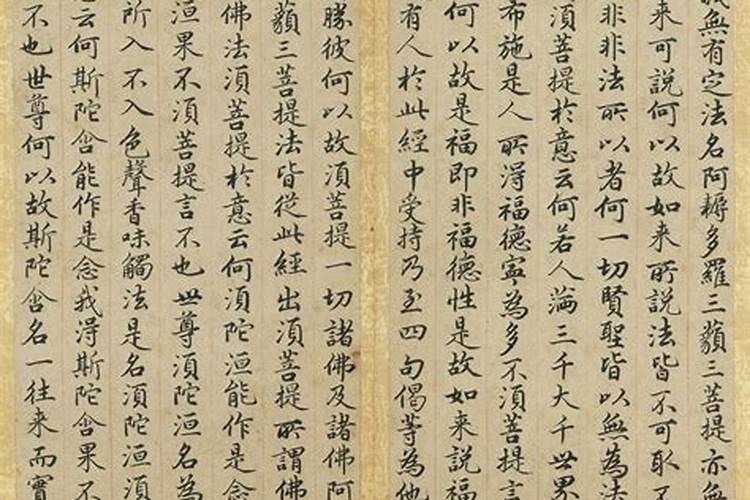 無有定法名阿耨多羅三藐三菩提亦無
来可說何以故如来所說法皆不可取不
非非法所以者何一切賢聖皆以無為法
須菩提於意云何若人滿三千大千世界
布施是人所得福德寧為多不須菩提言
何以故是福即非福德性是故如来說福
有人於此經中受持乃至四句偈等為他
勝彼何以故須菩提一切諸佛及諸佛阿
藐三菩提法皆從此經出須菩提所謂佛
佛法須菩提於意云何須陀洹能作是念
洹果不須菩提言不也世尊須陀洹名為
所入不入色聲香味觸法是名須陀洹須
云何斯陀含能作是念我得斯陀含果不
不也世尊何以故斯陀含名一往来而實